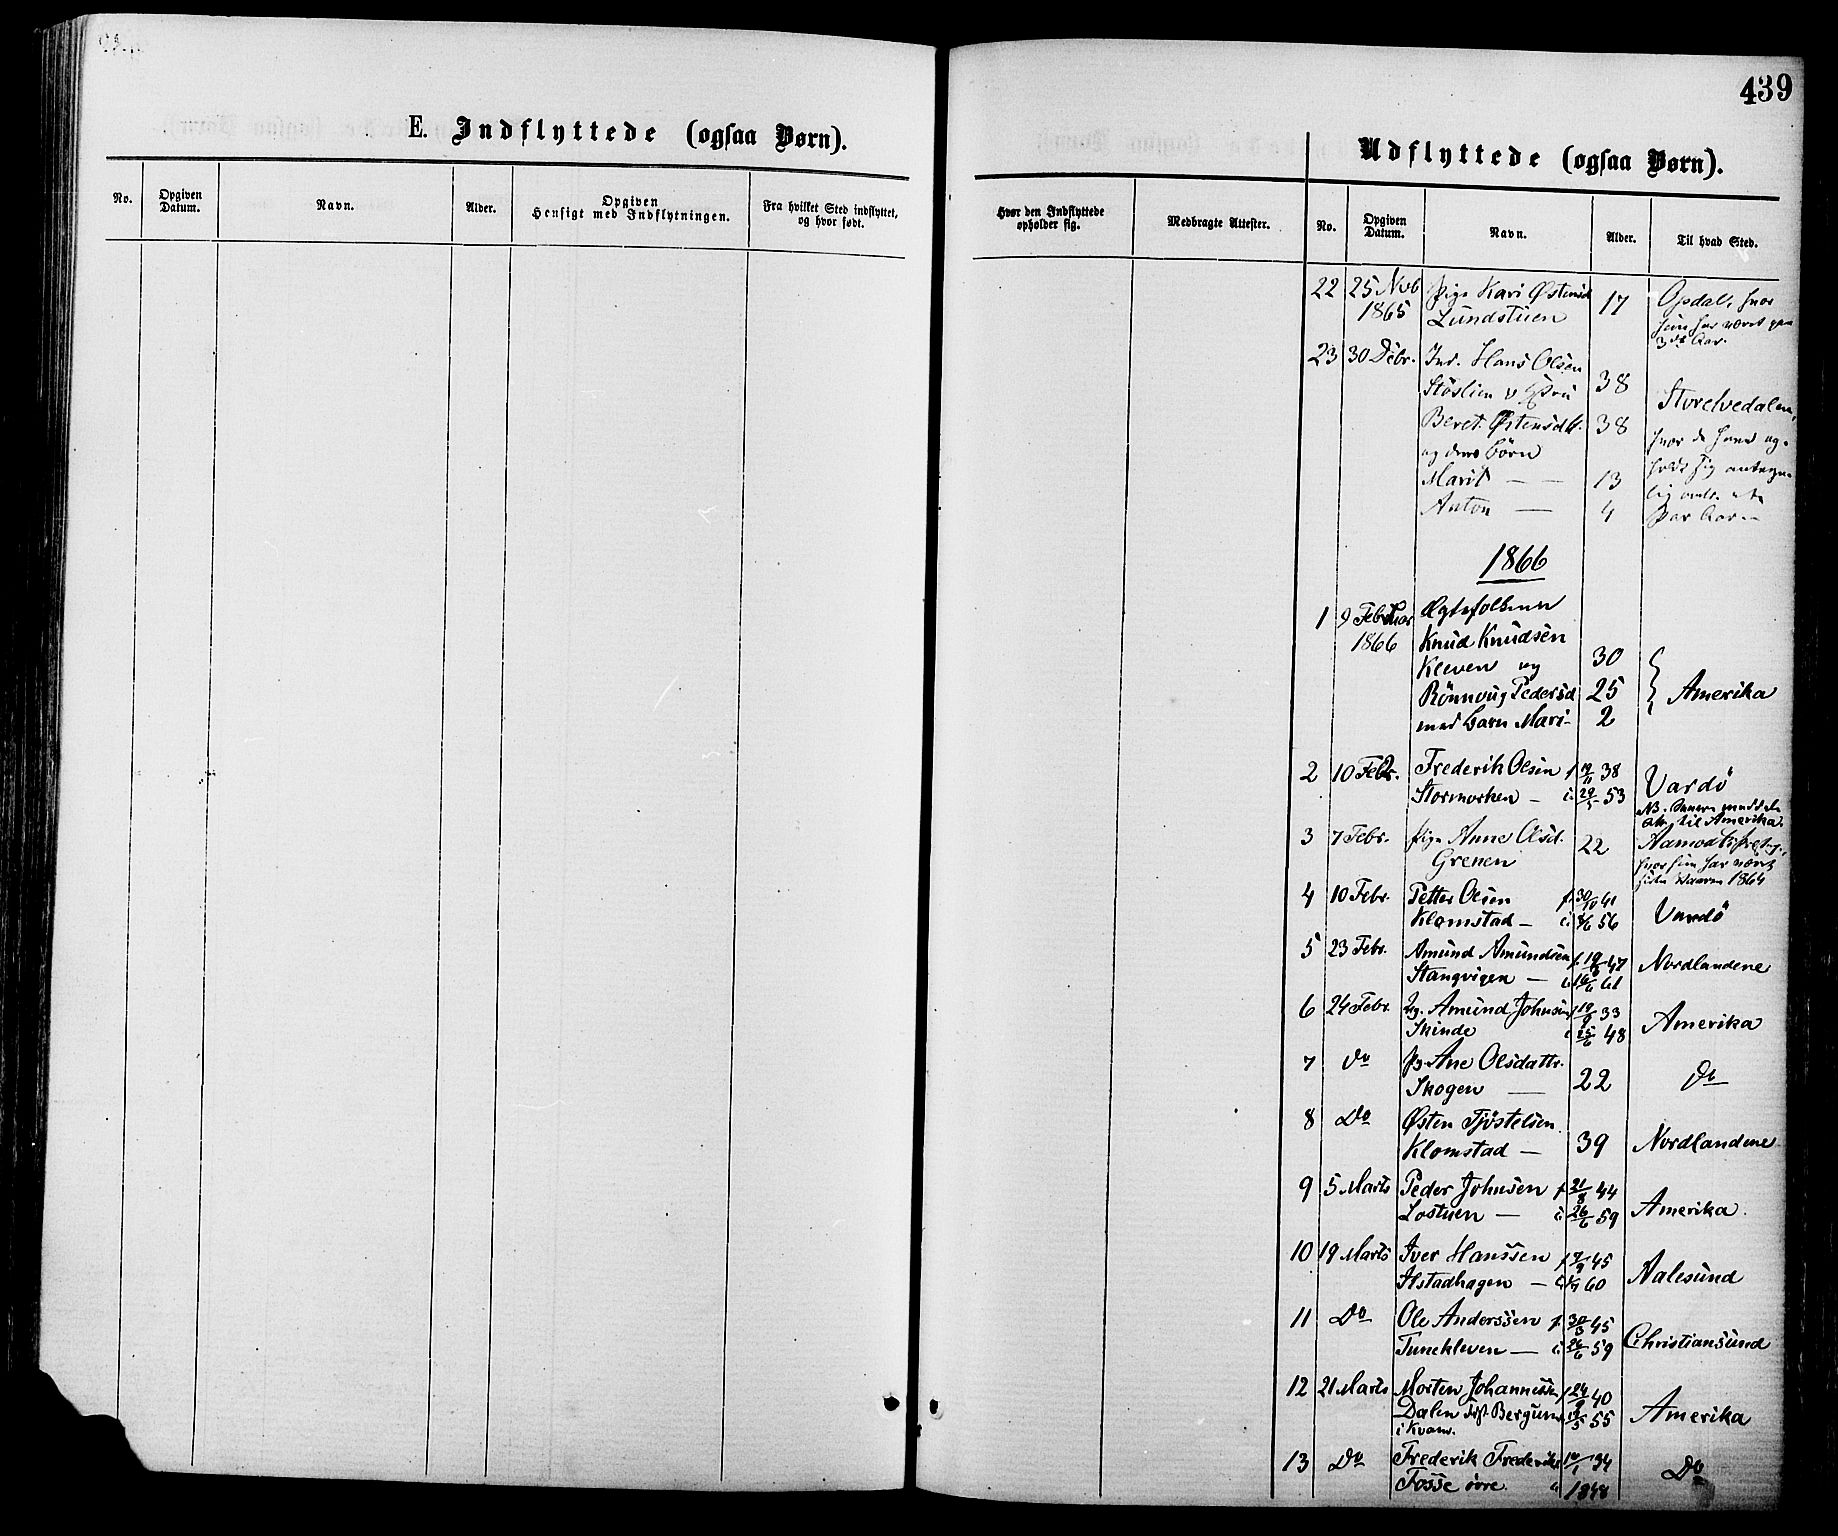 439
E. Indflyttede (ogsaa Børn).
Udflyttede (ogsaa Børn).
No. Opgiven Datum. Navn. Alder. Opgiven Hensigt med Indflytningen. Fra hvilket Sted indflyttet, og hvor født.
Hvor den Indflyttede opholder sig. Medbragte Attester. No. Opgiven Datum. Navn. Alder. Til hvad Sted.
22 25 Novb Pige Kari Østensd 17 Opdal, hvor
1865 Lundstuen hun har været
3de Aar.
23 30 Debr. Ind. Hans Olsen
Støslien 38 Storelvedalen,
Beret Østensdtt. 38 hvor de have op-
og deres Børn holdt sig
Marit — — 13
Anton — 4 Par Aar
1866
1 9 Februar Ægtefolkene
1866 Knud Knudsen
Kleven og 30
Rönnoug Pedersd 25 Amerika
med Barn Mari- 2
2 10 Febr. Frederik Olsen f 19/11 38 Vardö
Stormorken — i 29/5 53
NB.
til Amerika.
3 7 Febr. Pige Anne Olsd. 22
Grenen hvor hun har været
siden Vaaren 1864
4 10 Febr. Petter Olsen f. 30/10 41
Klomstad — i 8/6 56 Vardö
5 23 Febr. Amund Amundsen f. 19/8 47 Nordlandene
Stangvigen — i 16/6 61
6 24 Febr. Ug. Amund Johnsen f 19/9 33 Amerika
Skinde i 25/6 48
7 Do Pg. Ane Olsdattr.
Skogen — 22 Do
8 Do Østen Tjöstelsen
Klomstad — 39 Nordlandene
9 5 Marts Peder Johnsen f 21/8 44
Lostuen — i 26/6 59 Amerika.
10 19 Marts Iver Hanssen f 9/9 45
Ilstadhagen — i 60 Aalesund
11 Do Ole Anderssen f. 30/3 45
Tunekleven — i 26/6 59 Christiansund
12 21 Marts Morten Johannessen f 24/9 40
Dalen Bergum i 19/5 55 Amerika
i Kvam.
13 Do Frederik Frederiks 10/1 34
Fosse övre. 1848 Do